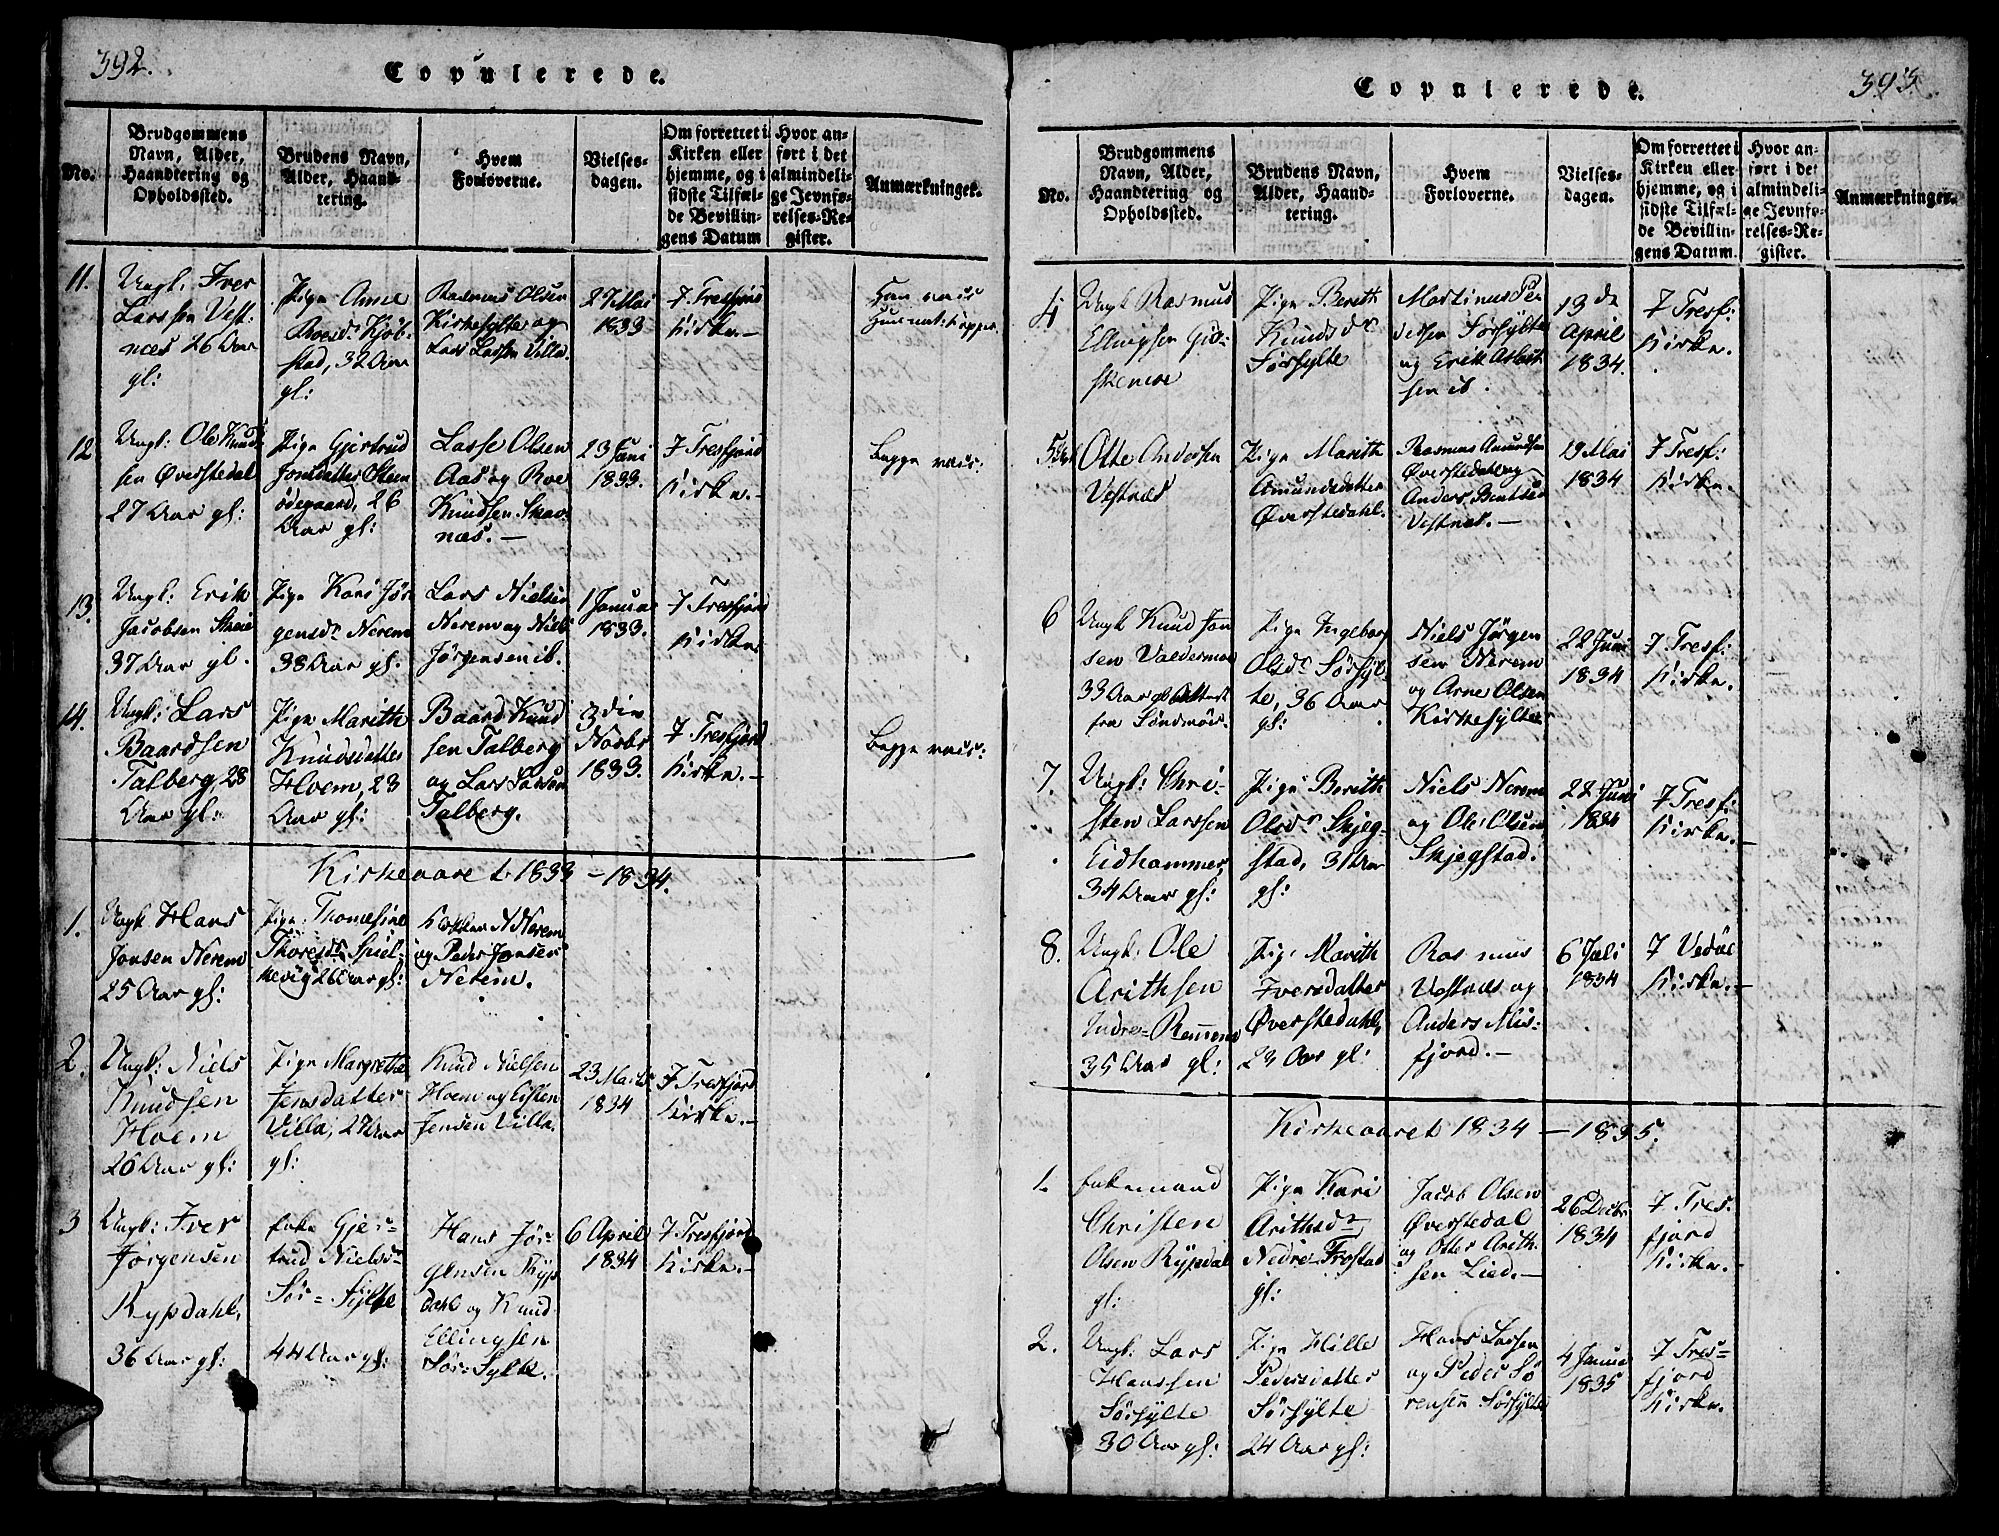 392.
Copulerede.
No.
Brudgommens
Navn, Alder,
Haandtering og
Opholdssted.
Brudens Navn,
Alder, Haand-
tering.
Hvem
Forloverne.
Vielses-
dagen.
Om forrettet i
Kirken eller
hjemme, og i
sidste Tilfæl-
de Bevillin-
gens Datum
Hvor an-
ført i det
almindeli-
ge Jevnfø-
relses-Re-
gister.
Anmærkninger.
11.
Ungk: Iver
Larssen Vest-
næs 26 Aar
gl:
Pige Anne
Roesdr Kjøb-
stad, 32 Aar
gl:
Rasmus Olsen
Kirkesylte og
Lars Larssen Villa.
27 Mai
1833
7 Tresfjord
Kirke.-
Han vacc
12
Ungk: Ole Knud-
sen Øverstedal
27 Aar gl:
Pige Gjertrud
Jonsdatter
ødegaard, 26
Aar gl:
Lasse Olsen
Aas og Roe
Knudsen Skav-
næs.-
23 Juni
1833.
7 Tresfjord
Kirke.-
Begge vacc:
13.
Ungk: Erik
Jacobsen
37 Aar gl.
Pige Kari Jør-
gensdr Nerem
38 Aar gl.
Lars Nielsen
Nerem og Niels
Jørgensen ib.
1 Januar
1833.
7 Tresfjord
Kirke
14.
Ungk: Lars
Baardsen
Talberg, 28
Aar gl:
Pige Marith
Knudsdatter
Hoem, 23
Aar gl:
Baard Knud
sen Talberg
og Lars Larsen
Talberg.
3 die
Novbr
1833.
7 Tresfjord
Kirke.-
Begge vacc:
Kirkeaaret 1833 - 1834.
1.
Ungk Hans
Jonsen Nerem
25 Aar gl:
Pige Thomasine
Thoresdr Spiel-
kevig 26 Aar gl:
N Nerem
og Peder Jonsen
Nerem.
2.
Ungk: Niels
Knudsen
Hoem
26 Aar gl:
Pige Margrethe
Jensdatter
Villa, 27 Aar
gl:
Knud Nielsen
Hoem og Eisten
Jensen Villa.
23 Marts
1834
7 Tresfjord
Kirke.-
3
Ungk: Iver
Jørgensen
Rypdahl,
36 Aar gl:
Enke Gjer-
trud Nielsdr
Sør-Sylte
44 Aar gl:
Hans Jør-
gensen Ryp
dahl og Knud
Ellingsen
Sør-Sylte.
6 April
1834
7 Tresfjord
Kirke.-
393.
Copulerede.
No.
Brudgommens
Navn, Alder,
Haandtering og
Opholdssted.
Brudens Navn,
Alder, Haand-
tering.
Hvem
Forloverne.
Vielses-
dagen.
Om forrettet i
Kirken eller
hjemme, og i
sidste Tilfæl-
de Bevillin-
gens Datum.
Hvor an-
ført i det
almindeli-
ge Jevnfø-
relses-Re-
gister.
Anmærkninger.
4
Ungk Rasmus
Ellingsen Gid-
skemoe
Pige Berith
Knudsdr
Sørsylte
Martinus Pe
dersen Sørsylte
og Erik
sen ib.
13 de
April
1834.
7 Tresf:
Kirke.
5
Otte Andersen
Vestnæs
Pige Marith
Amundsdatter
Øverstedahl.
Rasmus Amundsen
Øverstedahl og
Anders Bentsen
Vestnæs.-
19 Mai
1834
7 Tresf:
Kirke.-
6
Ungk Knud Jon
sen Valdermoe
33 Aar gl Attest
fra Søndmør.
Pige Ingeborg
Olsdr Sørsyl-
te, 36 Aar
gl:
Niels Jørgen
sen Nerem
og Arne Olsen
Kirkesylte
22 Juni
1834
7 Tresf:
Kirke.
7.
Ungk: Chri-
sten Larssen
Eidhammer,
34 Aar gl:
Pige Berith
Olsdr Skjeg-
stad, 31 Aar
gl:
Niels Nerem
og Ole Olsen
Skjegstad.
22 Juni
1834
7 Tresf:
Kirke.-
8.
Ungk: Ole
Arithsen
Indre-Remmem
35 Aar gl:
Pige Marith
Iversdatter
Øverstedahl,
23 Aar gl:
Rasmus
Vestnæs og
Anders Mis-
fjord.-
6 Juli
1834
7 Vedøe
Kirke.-
Kirkeaaret 1834 - 1835.
1.
Enkemand
Christen
Olsen Rypdal
gl:
Pige Kari
Arithsdr
Nedre-Frostad
gl:
Jacob Olsen
Øverstedal
og Otter Arith-
sen Lied.-
26 Decbr
1834
7 Tres-
fjord
Kirke.-
2.
Ungk: Lars
Hanssen
Sørsylte
30 Aar gl:
Pige Hille
Pedersdatter
Sørsylte
24 Aar gl:
Hans Larsen
og Peder Sø
rensen Sørsylte
4 Januar
1835
7 Tres-
fjord
Kirke.